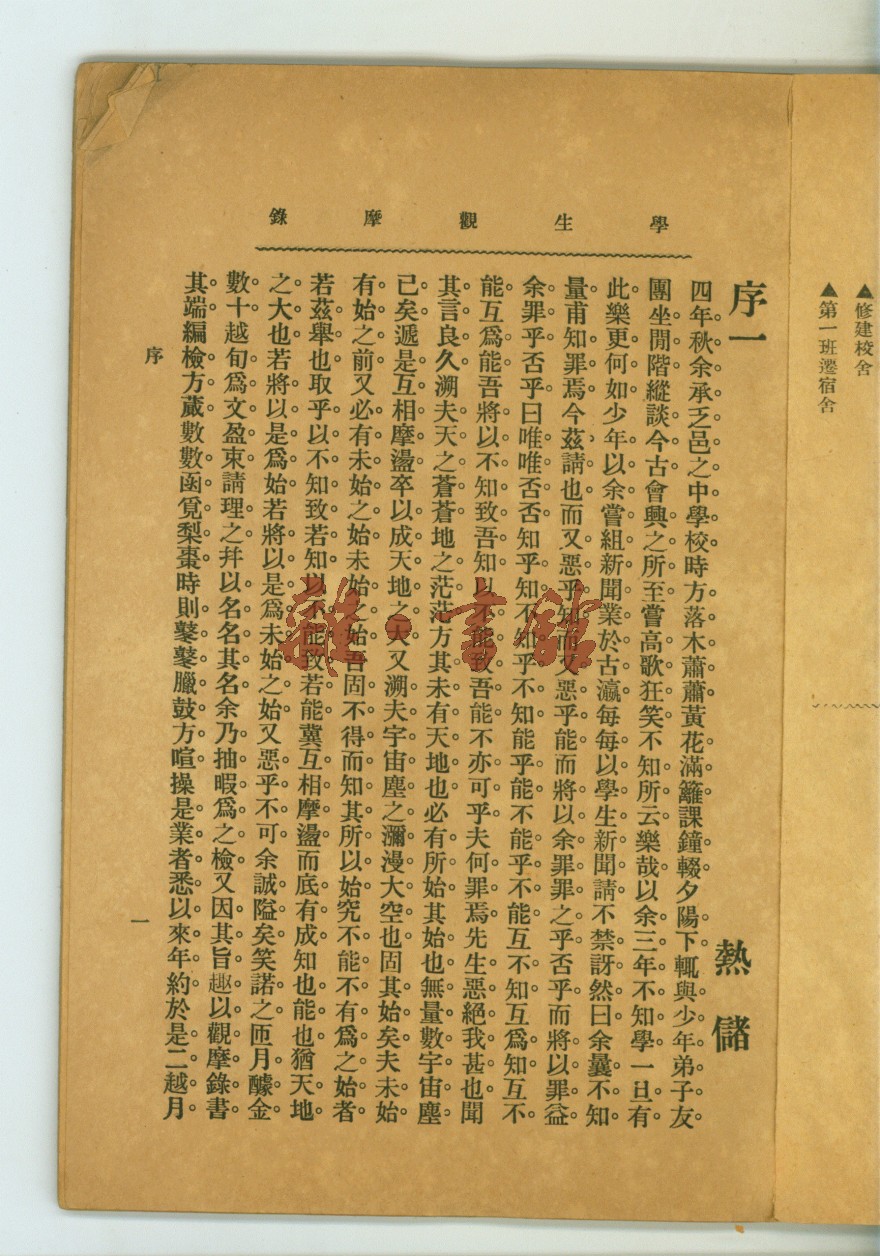 ▲修建校舍
▲第一班遷宿舍
學生觀摩錄
序一
熱儲
四年秋。余承乏邑之中學校。時方落木蕭蕭。黃花滿籬。課鐘輟。夕陽下。輒與少年弟子友。
團坐閒階。縱談今古。會興之所至。嘗高歌狂笑。不知所云。樂哉。以余三年不知學。一旦有
此樂。更何如。少年以余嘗組新聞業於古瀛。每每以學生新聞請。不禁訝然曰。余曩不知
量。甫知罪焉。今茲請也。而又惡乎知。而又惡乎能。而將以余罪罪之乎。否乎。而將以罪益
余罪乎。否乎。曰唯唯否否。知乎知。不知乎不知。能乎能。不能乎不能。互不知互爲知。互不
能互爲能。吾將以不知致吾知。以不能致吾能。不亦可乎。夫何罪焉。先生惡絕我甚也。聞
其言良久。溯夫天之蒼蒼。地之茫茫。方其未有天地也。必有所始。其始也。無量數宇宙塵
已矣。遞是互相摩盪。卒以成天地之大。又溯夫宇宙塵之瀰漫大空也。固其始矣。夫未始
有始之前。又必有未始之始。未始之始。吾固不得而知其所以始。究不能不有爲之始者。
若茲舉也。取乎以不知致若知。以不能致若能。冀互相摩盪而底有成。知也能也。猶天地
之大也。若將以是爲始。若將以是爲未始之始。又惡乎不可。余誠隘矣。笑諾之。匝月。醵金
數十。越旬。爲文盈束。請理之。幷以名名其名。余乃抽暇爲之檢。又因其旨趣。以觀摩錄書
其端。編檢方蕆。數數函覓梨棗。時則鼕鼕臘鼓方喧。操是業者悉以來年約。於是二越月
序
一
雜·書館